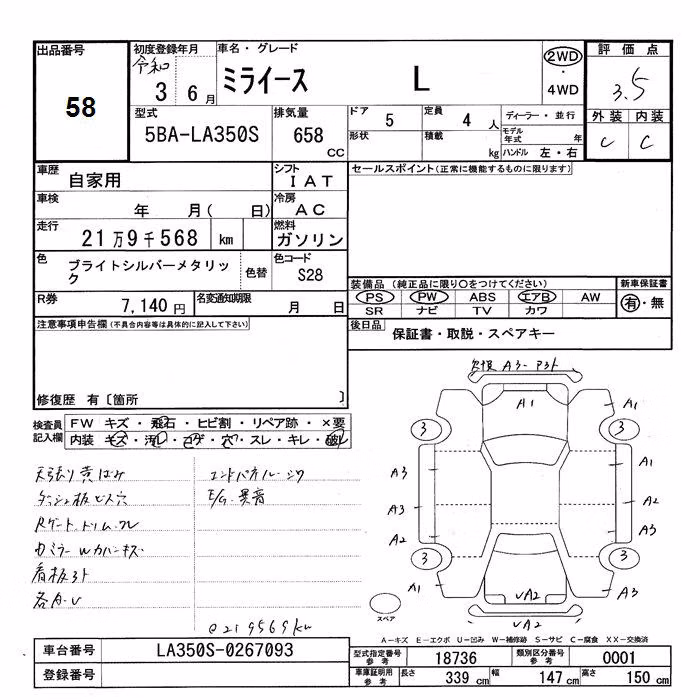 出品番号 初度登録年月 車名・グレード 評価点
58 令和 3 6月 ミライース L 2WD・4WD 3.5
型式 排気量 ドア 5 定員 4人 ディーラー・並行 外装 内装
5BA-LA350S 658 CC 形状 積載 kg モデル年式 年 ハンドル 左・右 C C
車歴 自家用 シフト IAT セールスポイント(正常に機能するものに限ります)
車検 年 月( 日) 冷房 AC
走行 21万9千568 km 燃料 ガソリン
色 ブライトシルバーメタリック 色替 色コード S28
装備品 (純正品に限り○をつけてください) 新車保証書
PS PW ABS エアB AW 有・無
SR ナビ TV カワ
R券 7,140円 名変通知期限 月 日
後日品 保証書・取説・スペアキー
注意事項申告欄(不具合内容等は具体的に記入して下さい)
修復歴 有〔箇所 〕
検査員記入欄 FW キズ・飛石・ヒビ割・リペア跡・×要
内装 キズ・汚レ・コゲ・穴・スレ・キレ・破レ
天張り黄ばみ
ダッシュ板ビス穴
Rゲートトリムワレ
カミラーWカバーキズ
看板3ト
各A・U
エンドパネルージワ
E/G異音
@219569km
A3
A1
A1
3
3
A3
A1
A3
A2
A2
A3
3
3
A1
A3
UA2
UA2
スペア
A-キズ E-エクボ U-凹み W-補修跡 S-サビ C-腐食 XX-交換済
車台番号 LA350S-0267093
登録番号
型式指定番号 参考 18736 類別区分番号 参考 0001
車庫証明用 参考 長さ 339 cm 幅 147 cm 高さ 150 cm